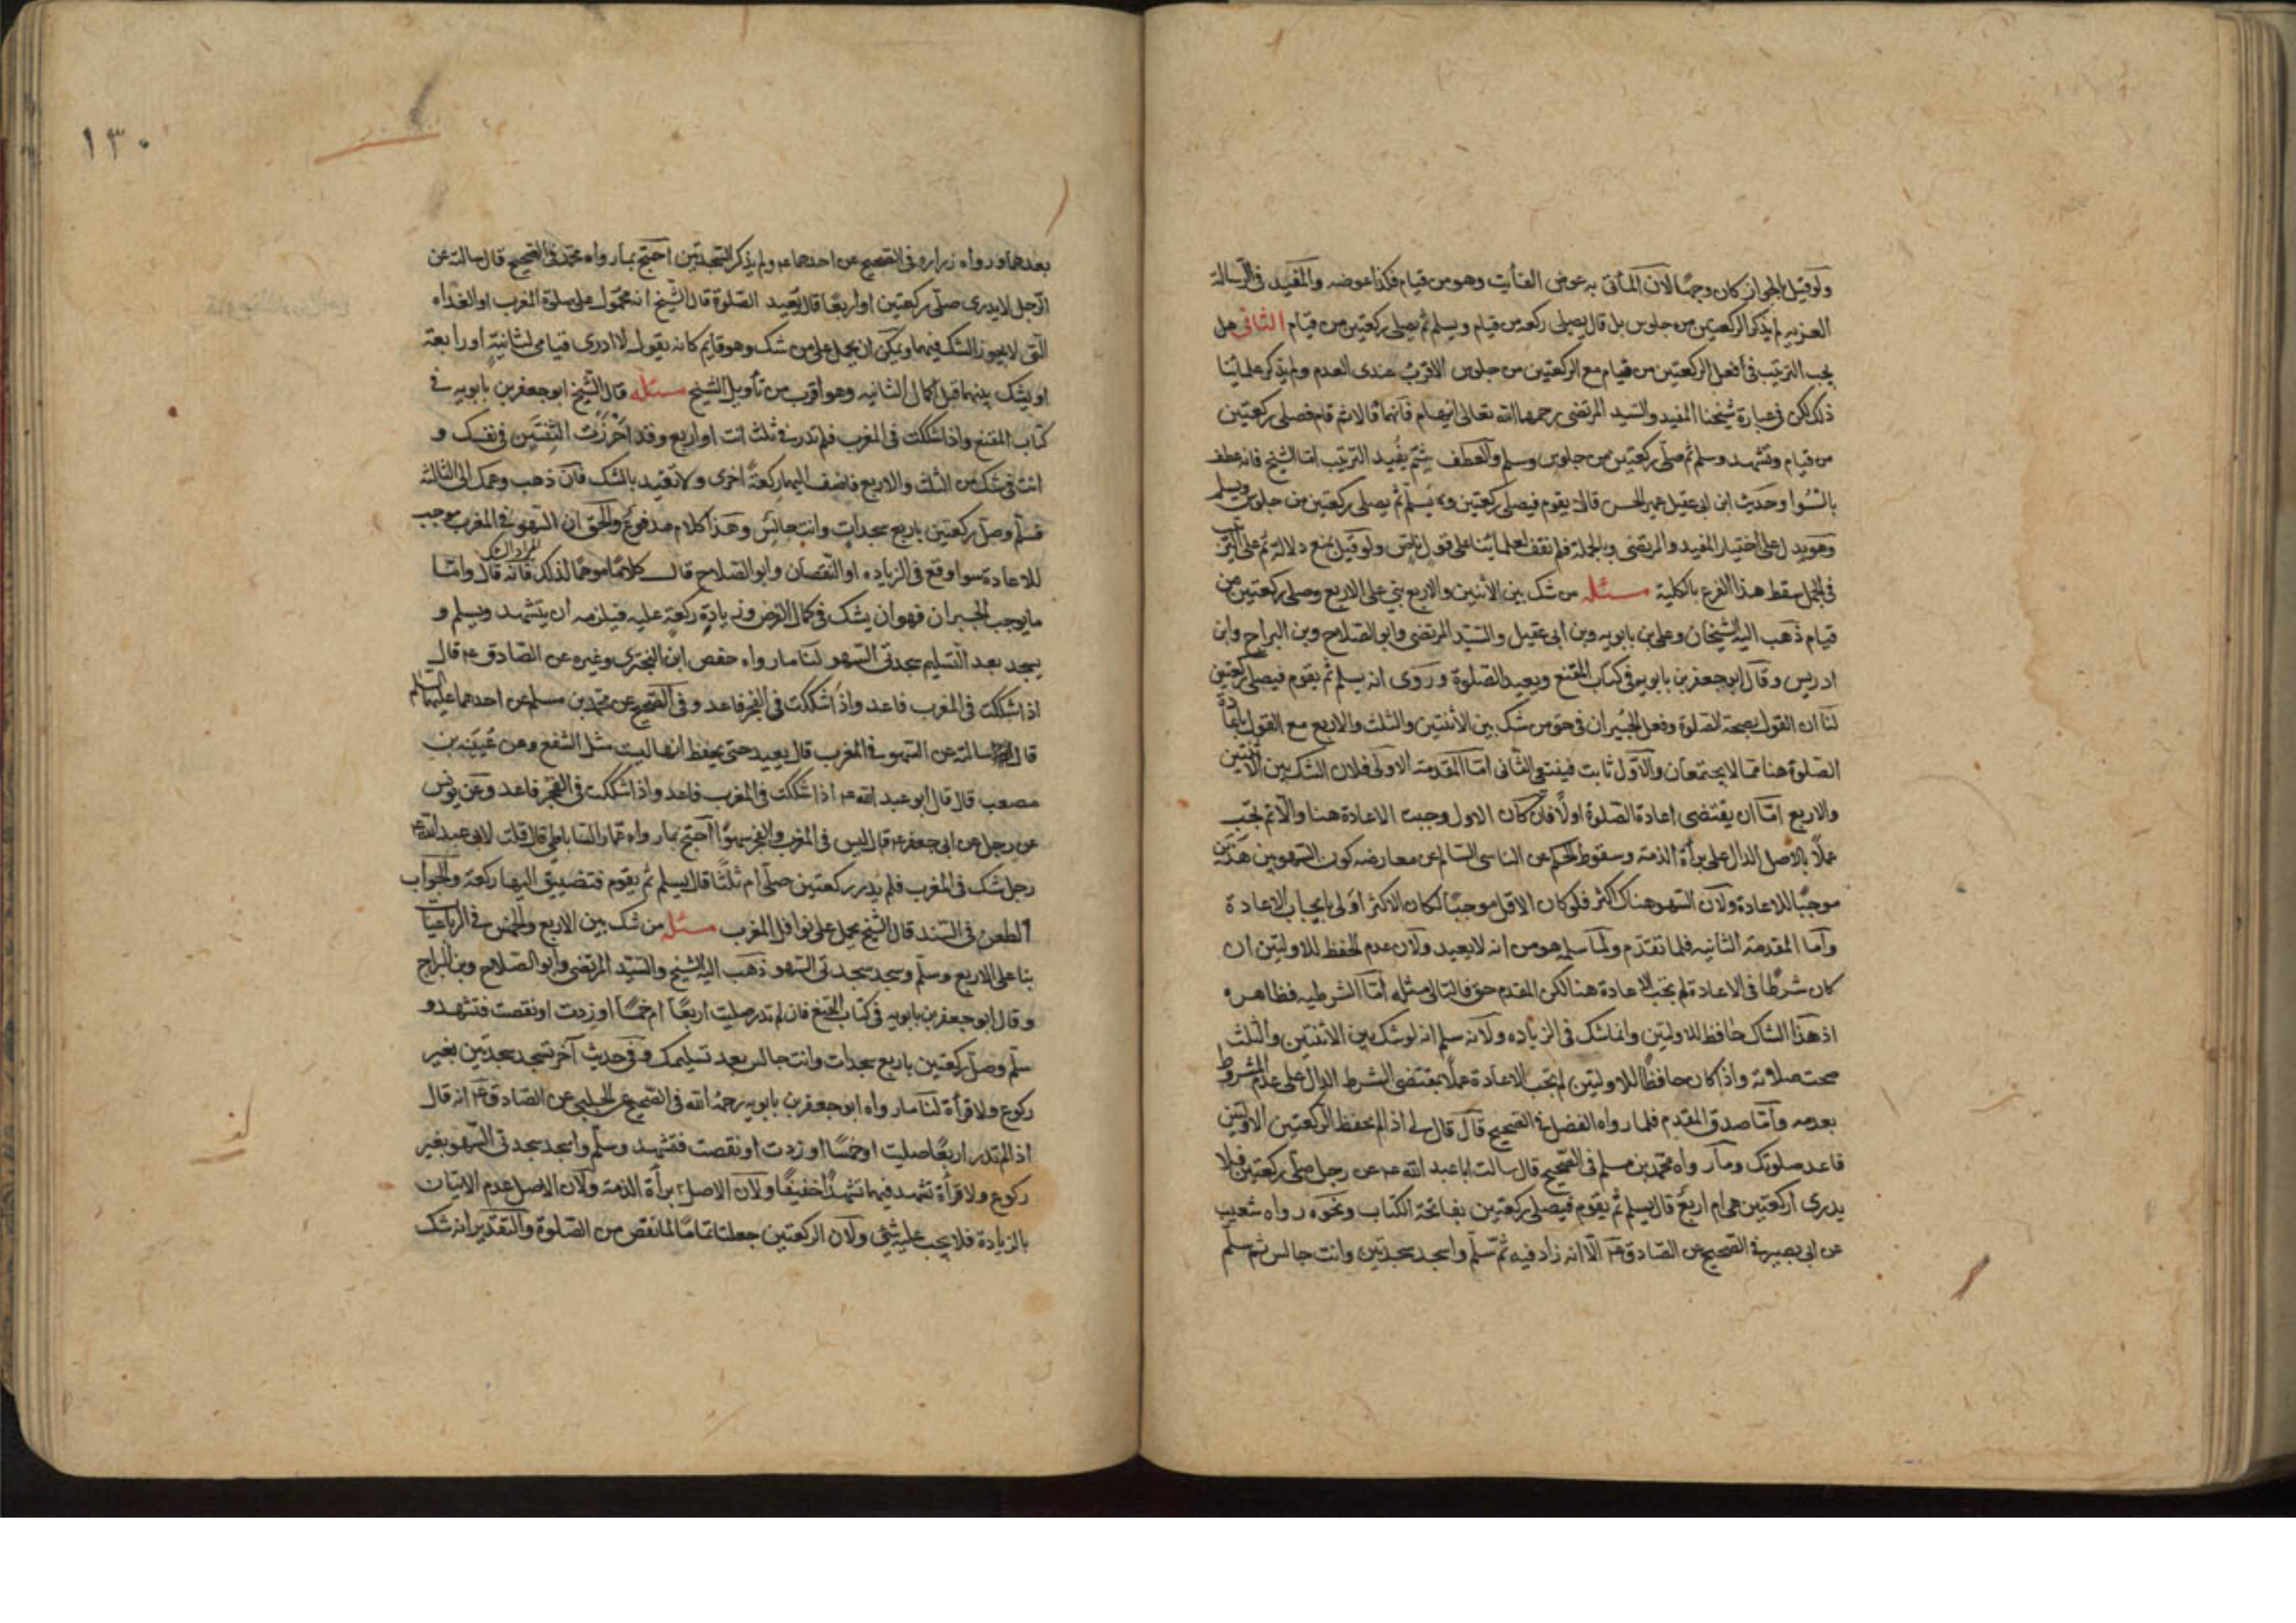 ولو قيل بالجواز كان وجهًا لان المأتى به عوض الفأيت وهو من قيام فكذا عوضه والمفيد فى الرسالة
العزيه لم يذكر الركعتين من جلوس بل قال يصلى ركعه من قيام ويسلم ثم يصلى ركعتين من قيام الثانى هل
يجب الترتيب فى أفعل الركعتين من قيام مع الركعتين من جلوس الاقرب عندى العدم ولم يذكر علمائنا
ذلك لكن فى عبارة شيخنا المفيد والسيد المرتضى رحمهما الله تعالى ايهام فانهما قالا ثم قام فصلى ركعتين
من قيام وتشهد وسلم ثم صلى ركعتين من جلوس وسلم والعطف بثم يفيد الترتيب اما الشيخ فانه عطف
بالسوا وحديث ابن ابى عقيل عن الحسن قال يقوم فيصلى ركعتين و يسلم ثم يصلى ركعتين من جلوس ويسلم
وهو يدل على اختيار المفيد والمرتضى وبالجملة فلم نقف لعلمائنا على قول ناص ولو قيل بمنع دلالة ثم على الترتيب
فى الجمل سقط هذا الفرع بالكلية مسئله من شك بين الأثنين والاربع بنى على الاربع وصلى ركعتين من
قيام ذهب اليه الشيخان وعلى بن بابويه وبن أبى عقيل والسيد المرتضى وابو الصلاح وبن البراج وابن
ادريس وقال ابو جعفر بن بابويه فى كتاب المقنع ويعيد الصلوة وروى انه يسلم ثم يقوم فيصلى ركعتين
لنا ان القول بصحة الصلوة وفعل الجبران فى حق من شك بين الأثنتين والثلث والاربع مع القول باعادة
الصلوة هنا مما لا يجتمعان والاول ثابت فينتفى الثانى اما المقدمة الاولى فلان الشك بين الاثنتين
والاربع امّا ان يقتضى اعادة الصلوة اولًا فان كان الاول وجبت الاعادة هنا والّا لم تجب
عملًا بالاصل الدال على برأة الذمة وسقوط الحكم عن الناسى السالم عن معارضه كون السهوين هذين
موجبًا للاعادة ولان السهو هناك اكثر فلو كان الاقل موجبًا لكان الاكثر اولى بايجاب الاعادة
وأما المقدمة الثانيه فلما تقدم ولما سلمه هو من انه لا يعيد ولان عدم الحفظ للاولتين ان
كان شرطًا فى الاعادة لم تجب الاعادة هنا لكن المقدم حق فالتالى مثله أما الشرطيه فظاهره
اذ هذا الشاك حافظ للاولتين وانما شك فى الزياده ولانه سلم انه لو شك بين الاثنتين والثلث
صحت صلاته واذا كان حافظًا للاولتين لم تجب الاعادة عملًا بمقتضى الشرط الدال على عدم المشروط
بعدمه وأمّا صدق المقدم فلما رواه الفضل فى الصحيح قال قال لى اذا لم تحفظ الركعتين الاولتين
فاعد صلوتك وما رواه محمد بن مسلم فى الصحيح قال سالت ابا عبد الله ع عن رجل صلى ركعتين فلا
يدرى اركعتين هى ام اربع قال يسلم ثم يقوم فيصلى ركعتين بفاتحة الكتاب ونحوه رواه شعيب
عن ابى بصير فى الصحيح عن الصادق ع الّا انه زاد فيه ثم سلّم واسجد سجدتين وانت جالس ثم سلّم
١٣٠
بعدهما ورواه زراره فى الصحيح عن احدهما ع ولم يذكر السجدتين احتج بما رواه محمد فى الصحيح قال سالته عن
الرجل لا يدرى صلّى ركعتين او اربعًا قال يعيد الصلوة قال الشيخ انه محمول على صلوة المغرب او الغداه
التى لا يجوز الشك فيهما ويمكن ان يحمل على من شك وهو قايم كانه يقول لا ادرى قيامى لثانية او رابعة
او يشك بينهما قبل اكمال الثانيه وهو اقرب من تأويل الشيخ مسئله قال الشيخ ابو جعفر بن بابويه فى
كتاب المقنع واذا شككت فى المغرب فلم تدر فى ثلث انت او اربع وقد أحرزت الثنتين فى نفسك و
انت فى شك من الثلث والاربع فاضف اليها ركعة اخرى ولا تعتد بالشك فان ذهب وهمك الى الثالثه
فسلّم وصلّ ركعتين باربع سجدات وانت جالس وهذا كلام مدفوع والحق ان السهو فى المغرب موجب
للاعادة سوا وقع فى الزياده او النقصان وابو الصلاح قال كلامًا موهمًا لذلك فانه قال وامّا
ما يوجب الجبران فهو ان يشك فى كمال الفرض وزيادة ركعة عليه فيلزمه أن يتشهد ويسلم و
يسجد بعد التسليم سجدتى السهو لنا ما رواه حفص ابن البخترى وغيره عن الصادق ع قال
اذا شككت فى المغرب فاعد واذا شككت فى الفجر فاعد وفى الصحيح عن محمد بن مسلم عن احدهما عليهما السلم
قال سالته عن السهو فى المغرب قال يعيد حتى يحفظ انها ليست مثل الشفع وعن عنبسه بن
مصعب قال قال ابو عبد الله ع اذا شككت فى المغرب فاعد واذا شككت فى الفجر فاعد وعن يونس
عن رجل عن ابى جعفر ع قال ليس فى المغرب والفجر سهوًا احتج بما رواه عمار الساباطى قال قلت لابى عبد الله ع
رجل شك فى المغرب فلم يدر ركعتين صلّى ام ثلثًا قال يسلم ثم يقوم فتضيق اليها ركعة والجواب
الطعن فى السند قال الشيخ يحمل على نوافل المغرب مسئله من شك بين الاربع والخمس فى الرباعيا
بنا على الاربع وسلّم وسجد سجدتى السهو ذهب اليه الشيخ والسيّد المرتضى وأبو الصلاح وبن البراج
وقال ابو جعفر بن بابويه فى كتاب المقنع فان لم تدر صليت اربعًا ام خمسًا او زدت او نقصت فتشهد و
سلّم وصلّ ركعتين باربع سجدات وانت جالس بعد تسليمك وفى حديث آخر تسجد سجدتين بغير
ركوع ولا قرأة لنا ما رواه ابو جعفر بن بابويه رحمه الله فى الصحيح عن الحلبى عن الصادق ع انه قال
اذا لم تدر اربعًا صليت او خمسًا او زدت او نقصت فتشهد وسلّم واسجد سجدتى السهو بغير
ركوع ولا قرأة تشهد فيهما تشهدًا خفيفًا ولان الاصل برأة الذمة ولان الاصل عدم الاتيان
بالزيادة فلا يجب عليه شئ ولان الركعتين جعلتا تمامًا لما نقص من الصلوة والتقدير انه شك